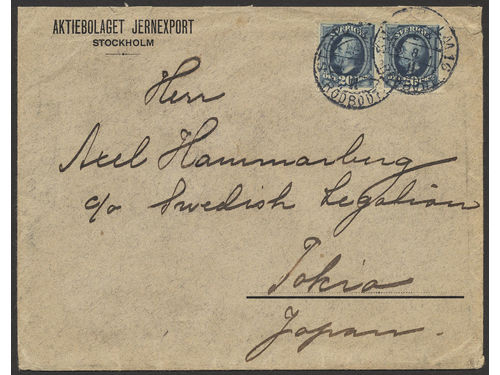 AKTIEBOLAGET JERNEXPORT
STOCKHOLM
SVERIGE
20
Herr
Axel Hammarberg
c/o Swedish Legation
Tokio
Japan.